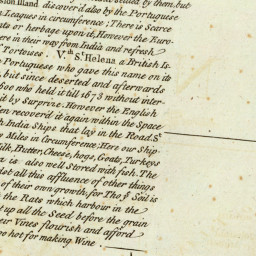 sion Iland discover'd also by the Portuguese
Leagues in circumference; There is Scarce
ts or herbage upon it, However the Euro-
ere in their way from India and refresh
Tortoises. V. St. Helena a British Is-
Portuguese who gave this name on its
, but since deserted and afterwards
who held it till 1673 without inter-
it by Surprize. However the English
en recover'd it again within the Space
h India Ships that lay in the Road. St.
Miles in Circumference; Here our Ship-
ilk, Butter, Cheese, hogs, Goats, Turkeys
is also well Stored with fish. The
st all this affluence of other things
of their own growth, for Tho' ye Soil is
the Rats which harbour in the
up all the Seed before the grain
eir Vines flourish and afford
oo hot for making Wine.